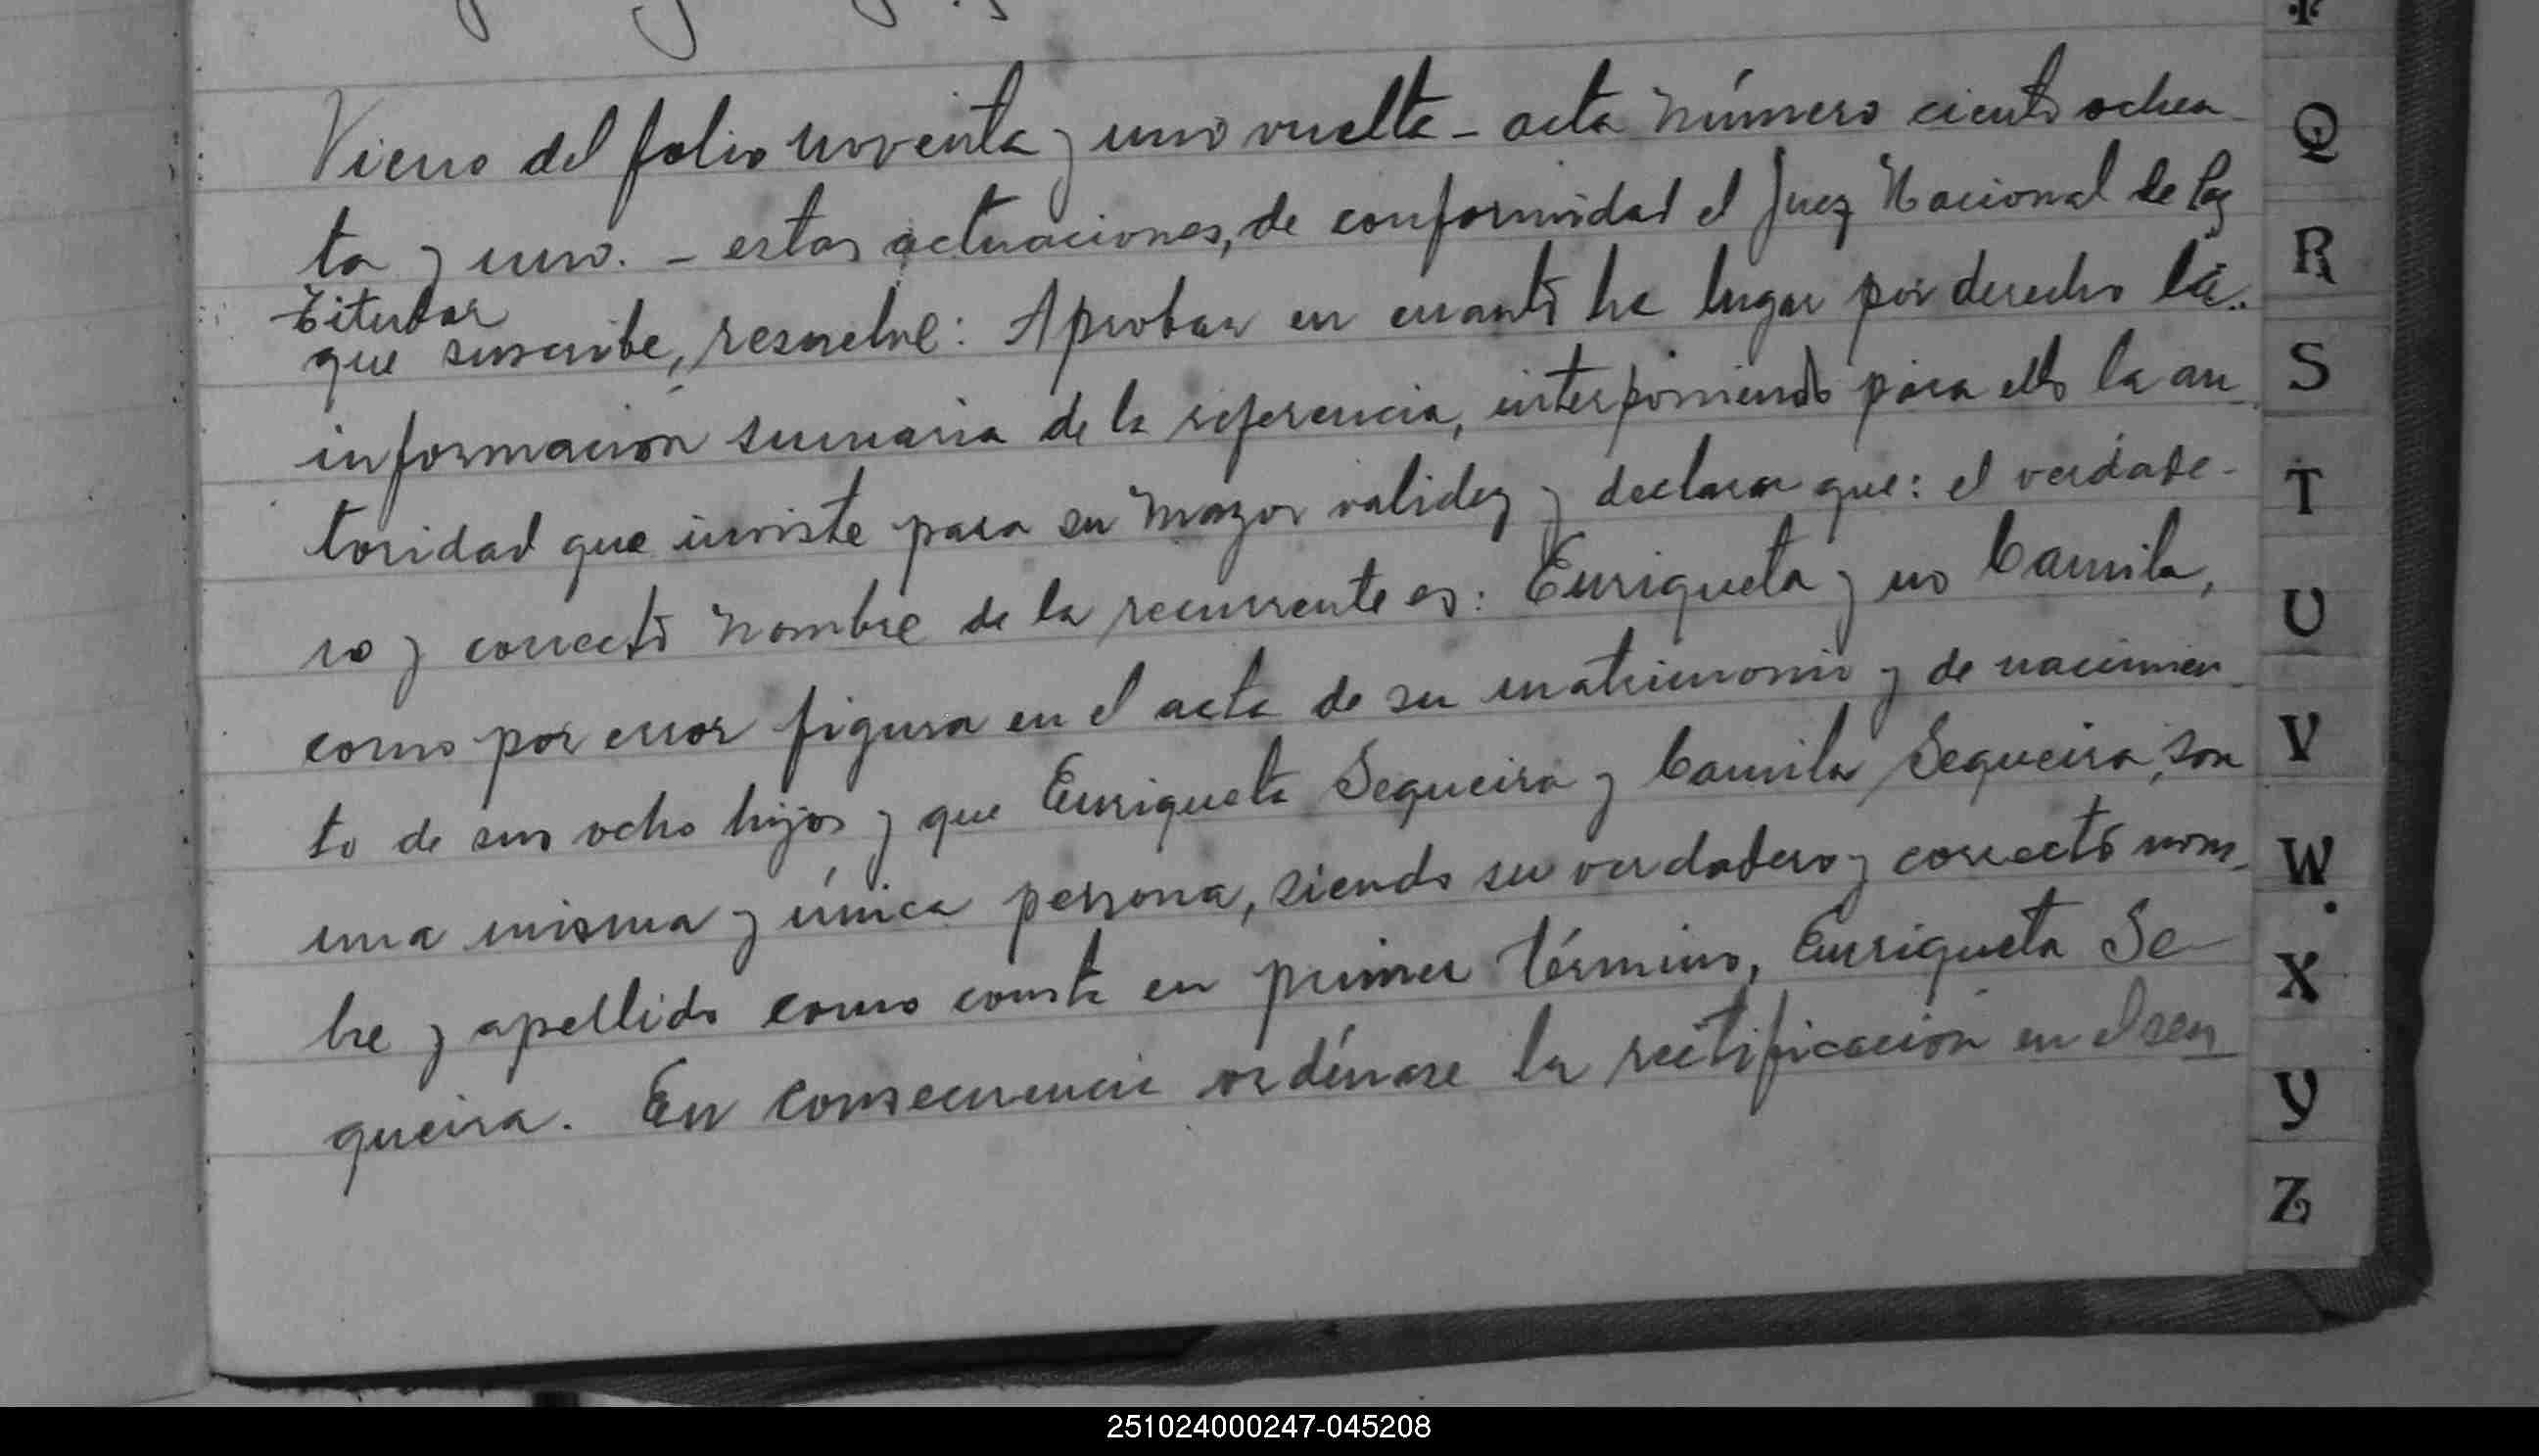 Viene del folio noventa y uno vuelta - acta número ciento ochen-
ta y uno. - estas actuaciones, de conformidad el Juez Nacional de Paz
Titular
que suscribe, resuelve: Aprobar en cuanto ha lugar por derecho la
información sumaria de la referencia, interponiendo para ello la au-
toridad que inviste para su mayor validez y declarar que: el verdade-
ro y correcto nombre de la recurrente es: Enriqueta y no Camila,
como por error figura en el acta de su matrimonio y de nacimien-
to de sus ocho hijos y que Enriqueta Sequeira y Camila Sequeira, son
una misma y única persona, siendo su verdadero y correcto nom-
bre y apellido como consta en primer término, Enriqueta Se-
queira. En consecuencia ordénase la rectificación en el sen
Q
R
S
T
U
V
W.
X
Y
Z
251024000247-045208